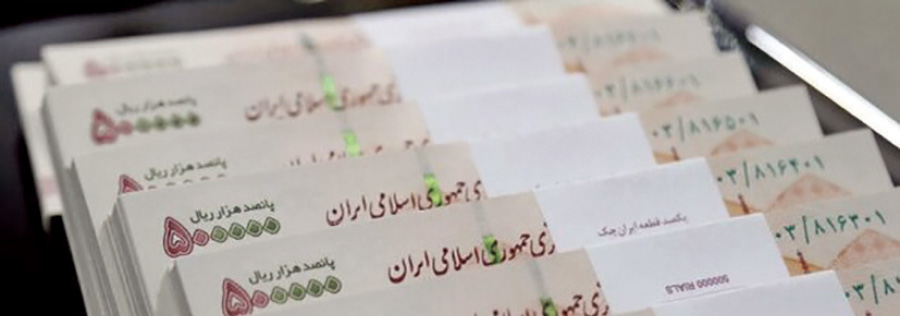 ۰۳/۸۱۶۶۰۱
پانصد هزار ریال
۵۰۰۰۰۰
جمهوری اسلامی ایران
۰۳/۸۱۶۵۰۱
پانصد هزار ریال
۰۳/۸۱۶۴۰۱
پانصد هزار ریال
۵۰۰۰۰۰
جمهوری اسلامی ایران
یکصد قطعه ایران چک
۰۳/۸۱۶۳۰۱
پانصد هزار ریال
۵۰۰۰۰۰
جمهوری اسلامی ایران
500000 RIALS